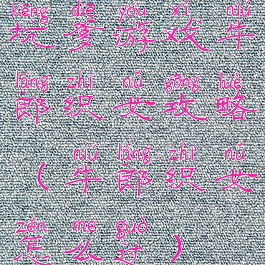 kēng diē yóu xì niú
坑爹游戏牛
láng zhī nǚ gōng lüè
郎织女攻略
niú láng zhī nǚ
（牛郎织女
zěn me guò
怎么过）